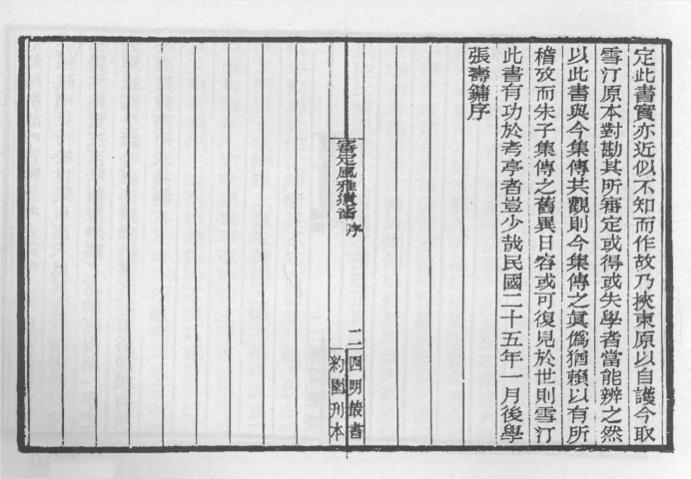 定此書實亦近似不知而作故乃挾東原以自護今取
雪汀原本對勘其所審定或得或失學者當能辨之然
以此書與今集傳共觀則今集傳之眞僞猶賴以有所
稽攷而朱子集傳之舊異日容或可復見於世則雪汀
此書有功於考亭者豈少哉民國二十五年一月後學
張壽鏞序
審定風雅遺音 序
二
四明叢書
約園刊本